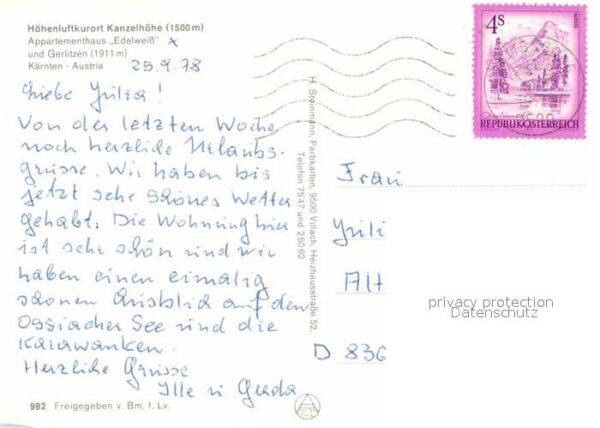 Höhenluftkurort Kanzelhöhe (1500 m)
Appartementhaus „Edelweiß" x
und Gerlitzen (1911 m)
Kärnten - Austria
25.9.78
Liebe Julia!
Von der letzten Woche
noch herzliche Urlaubs-
grüsse. Wir haben bis
jetzt sehr schönes Wetter
gehabt. Die Wohnung hier
ist sehr schön und wir
haben einen einmalig
schönen Ausblick auf den
Ossiacher See und die
Karawanken.
Herzliche Grüsse
Ille u Gerda
982 Freigegeben v. Bm. f. Lv.
H. Steinmann, Farbkarten, 9500 Villach, Heizhausstraße 52,
Telefon 75 47 und 2 60 62
4s
REPUBLIK ÖSTERREICH
Frau
Juli
Alt
D 836
privacy protection
Datenschutz